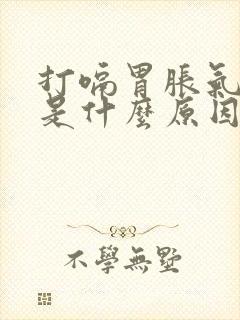 打嗝胃脹氣
是什麼原因
不學無墅